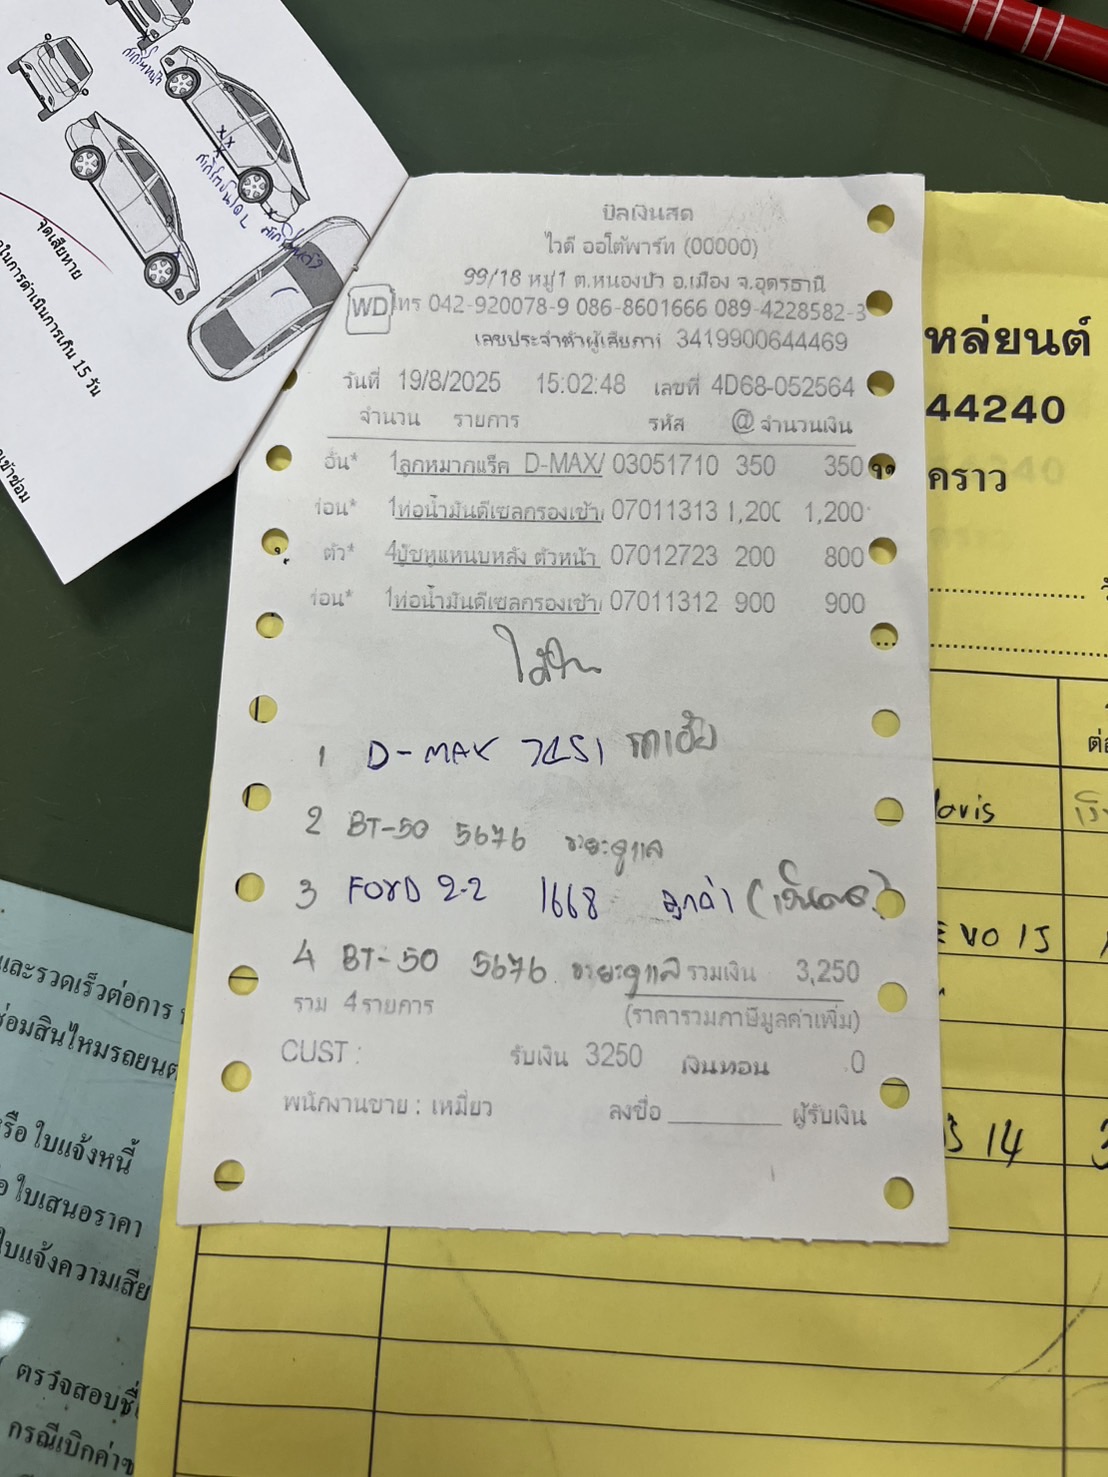 บิลเงินสด
ไวดี ออโต้พาร์ท (00000)
99/18 หมู่1 ต.หนองบัว อ.เมือง จ.อุดรธานี
WD โทร 042-920078-9 086-8601666 089-4228582-3
เลขประจำตัวผู้เสียภาษี 3419900644469
วันที่ 19/8/2025 15:02:48 เลขที่ 4D68-052564
จำนวน รายการ รหัส @ จำนวนเงิน
อัน* 1 ลูกหมากแร็ค D-MAX/ 03051710 350 350
ท่อน* 1 ท่อน้ำมันดีเซลกรองเข้า/ 07011313 1,200 1,200
ตัว* 4 บู๊ชหูแหนบหลัง ตัวหน้า 07012723 200 800
ท่อน* 1 ท่อน้ำมันดีเซลกรองเข้า/ 07011312 900 900
1 D-MAX 7151 รถเฮีย
2 BT-50 5676 ขยะภูแล
3 FORD 2.2 1668 ลูกค้า (เงินสด)
4 BT-50 5676 ขยะภูแล รวมเงิน 3,250
รวม 4 รายการ (ราคารวมภาษีมูลค่าเพิ่ม)
CUST : รับเงิน 3250 เงินทอน 0
พนักงานขาย : เหมี่ยว ลงชื่อ ผู้รับเงิน
จุดเสียหาย
ในการดำเนินการเกิน 15 วัน
เข้าซ่อม
หล่ยนต์
44240
คราว
EVO 15
14
และรวดเร็วต่อการ
ซ่อมสินไหมรถยนต
รือ ใบแจ้งหนี้
ใบเสนอราคา
ใบแจ้งความเสีย
ตรวจสอบชื่
กรณีเบิกค่าซ